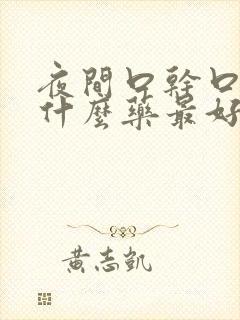 夜間口幹口
什麼藥最好
黃志凱